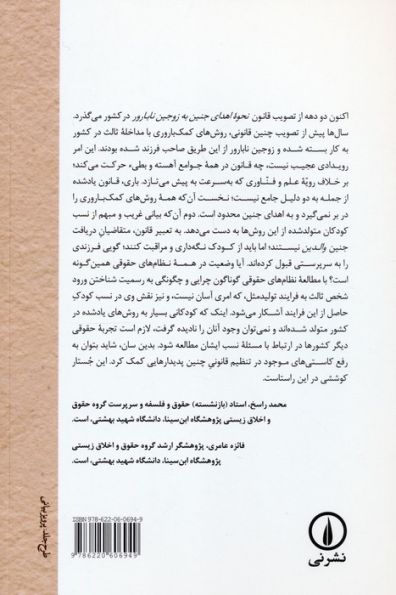 اکنون دو دهه از تصویب قانون نحوهٔ اهدای جنین به زوجین نابارور در کشور می‌گذرد.
سال‌ها پیش از تصویب چنین قانونی، روش‌های کمک‌باروری با مداخلهٔ ثالث در کشور
به کار بسته شده و زوجین نابارور از این طریق صاحب فرزند شده بودند. این امر
رویدادی عجیب نیست، چه قانون در همهٔ جوامع آهسته و بطیء حرکت می‌کند؛
بر خلاف رویّهٔ علم و فنّاوری که به‌سرعت به پیش می‌تازد. باری، قانون یادشده
از جمله به دو دلیل جامع نیست؛ نخست آن‌که همهٔ روش‌های کمک‌باروری را
در بر نمی‌گیرد و به اهدای جنین محدود است. دوم آن‌که بیانی غریب و مبهم از نسب
کودکان متولدشده از این روش‌ها به دست می‌دهد. به تعبیر قانون، متقاضیانِ دریافت
جنین والدین نیستند؛ اما باید از کودک نگه‌داری و مراقبت کنند؛ گویی فرزندی
را به سرپرستی قبول کرده‌اند. آیا وضعیت در همهٔ نظام‌های حقوقی همین‌گونه
است؟ با مطالعهٔ نظام‌های حقوقی گوناگون چرایی و چگونگی به رسمیت شناختن ورود
شخص ثالث به فرایند تولیدمثل، که امری آسان نیست، و نیز نقش وی در نسب کودکِ
حاصل از این فرایند آشکار می‌شود. اینک که کودکانی بسیار به روش‌های یادشده در
کشور متولد شده‌اند و نمی‌توان وجود آنان را نادیده گرفت، لازم است تجربهٔ حقوقی
دیگر کشورها در ارتباط با مسئلهٔ نسب ایشان مطالعه شود. بدین سان، شاید بتوان به
رفع کاستی‌های موجود در تنظیم قانونیِ چنین پدیدارهایی کمک کرد. این جُستار
کوششی در این راستاست.
محمد راسخ، استاد (بازنشسته) حقوق و فلسفه و سرپرست گروه حقوق
و اخلاق زیستی پژوهشگاه ابن‌سینا، دانشگاه شهید بهشتی، است.
فائزه عامری، پژوهشگر ارشد گروه حقوق و اخلاق زیستی
پژوهشگاه ابن‌سینا، دانشگاه شهید بهشتی، است.
طرح جلد: پرویز بیانی
ISBN 978-622-06-0694-9
9 786220 606949
نشر نی